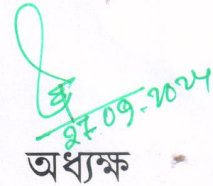 27.09.2024
অধ্যক্ষ